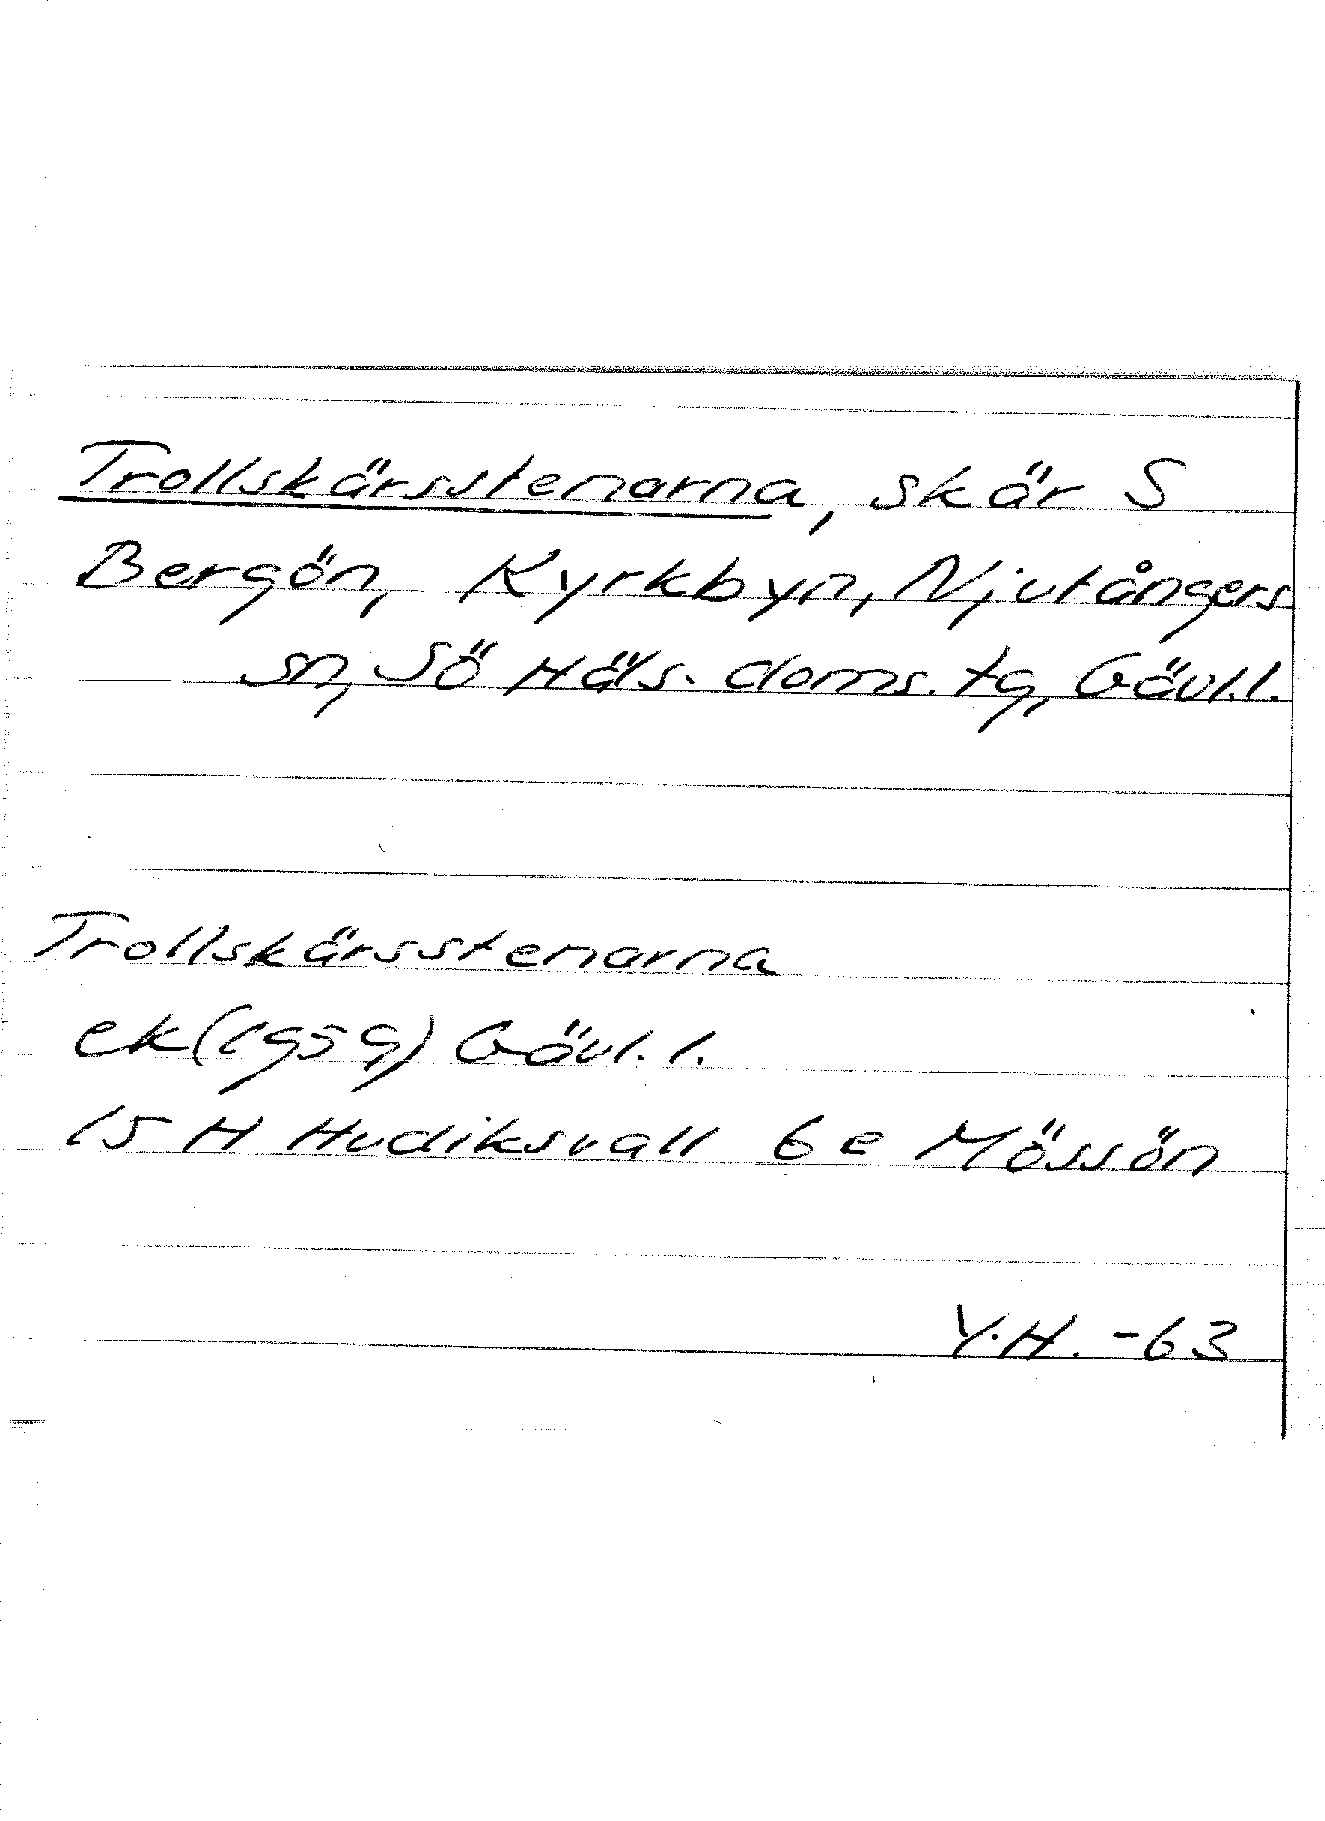 Trollskärsstenarna, skär S
Bergön, Kyrkbyn, Njutångers
sn, Sö Häls. doms. tg, Gävl.l.
Trollskärsstenarna
ek(1959) Gävl.l.
15 H Hudiksvall 6e Mössön
Y.H. -63